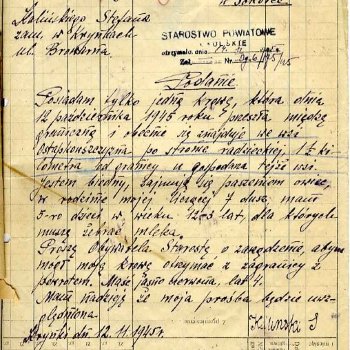 w Sokółce
Kalińskiego Stefana
zam. w Krynkach
ul.
STAROSTWO POWIATOWE
SOKÓLSKIE
otrzymało, dnia
Zał. Nr.
Podanie
Posiadam tylko jedną krowę, która dnia
12 października 1945 roku przeszła między
graniczną i obecnie się znajduje we wsi
Ostapkowszczyzna po stronie radzieckiej, 1½ ki-
lometra od granicy u gospodarza tejże wsi.
Jestem biedny, zajmuję się paszeniem owiec,
w rodzinie mojej liczącej 7 dusz, mam
3-ro dzieci w wieku lat, dla których
muszę żebrać mleka.
Proszę Obywatela Starostę o zarządzenie, abym
mógł moją krowę otrzymać z zagranicy z
powrotem. Maść czerwona, lat 4.
Mam nadzieję że moja prośba będzie uwz-
ględniona.
Krynki dn. 12.11.1945r.